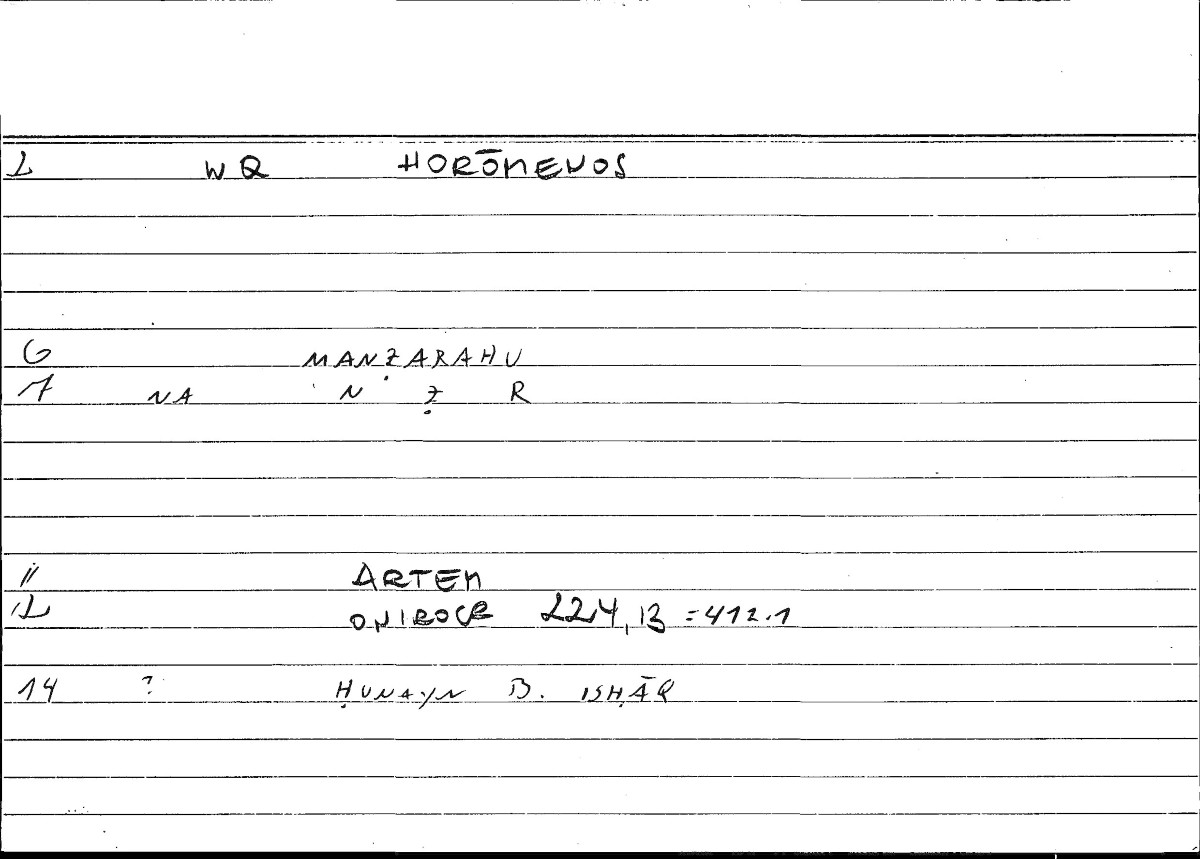 1 WQ HORŌMENOS
6 MANẒARAHU
7 NA N Ẓ R
11 ARTEM
12 ONIROCR 224,13 =412.1
14 ? ḤUNAYN B. ISḤĀQ